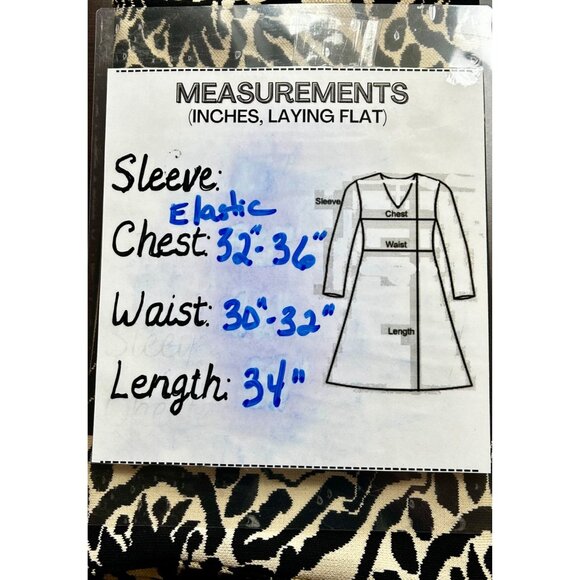 MEASUREMENTS
(INCHES, LAYING FLAT)
Sleeve:
Elastic
Chest: 32"- 36"
Waist: 30"-32"
Length: 34"
Sleeve
Chest
Waist
Length